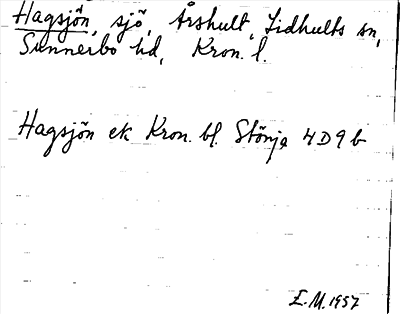 Hagsjön, sjö, Årshult, Lidhults sn,
Sunnerbo hd, Kron. l.
Hagsjön ek Kron. bl. Stönja 4D9b
E.M. 1957